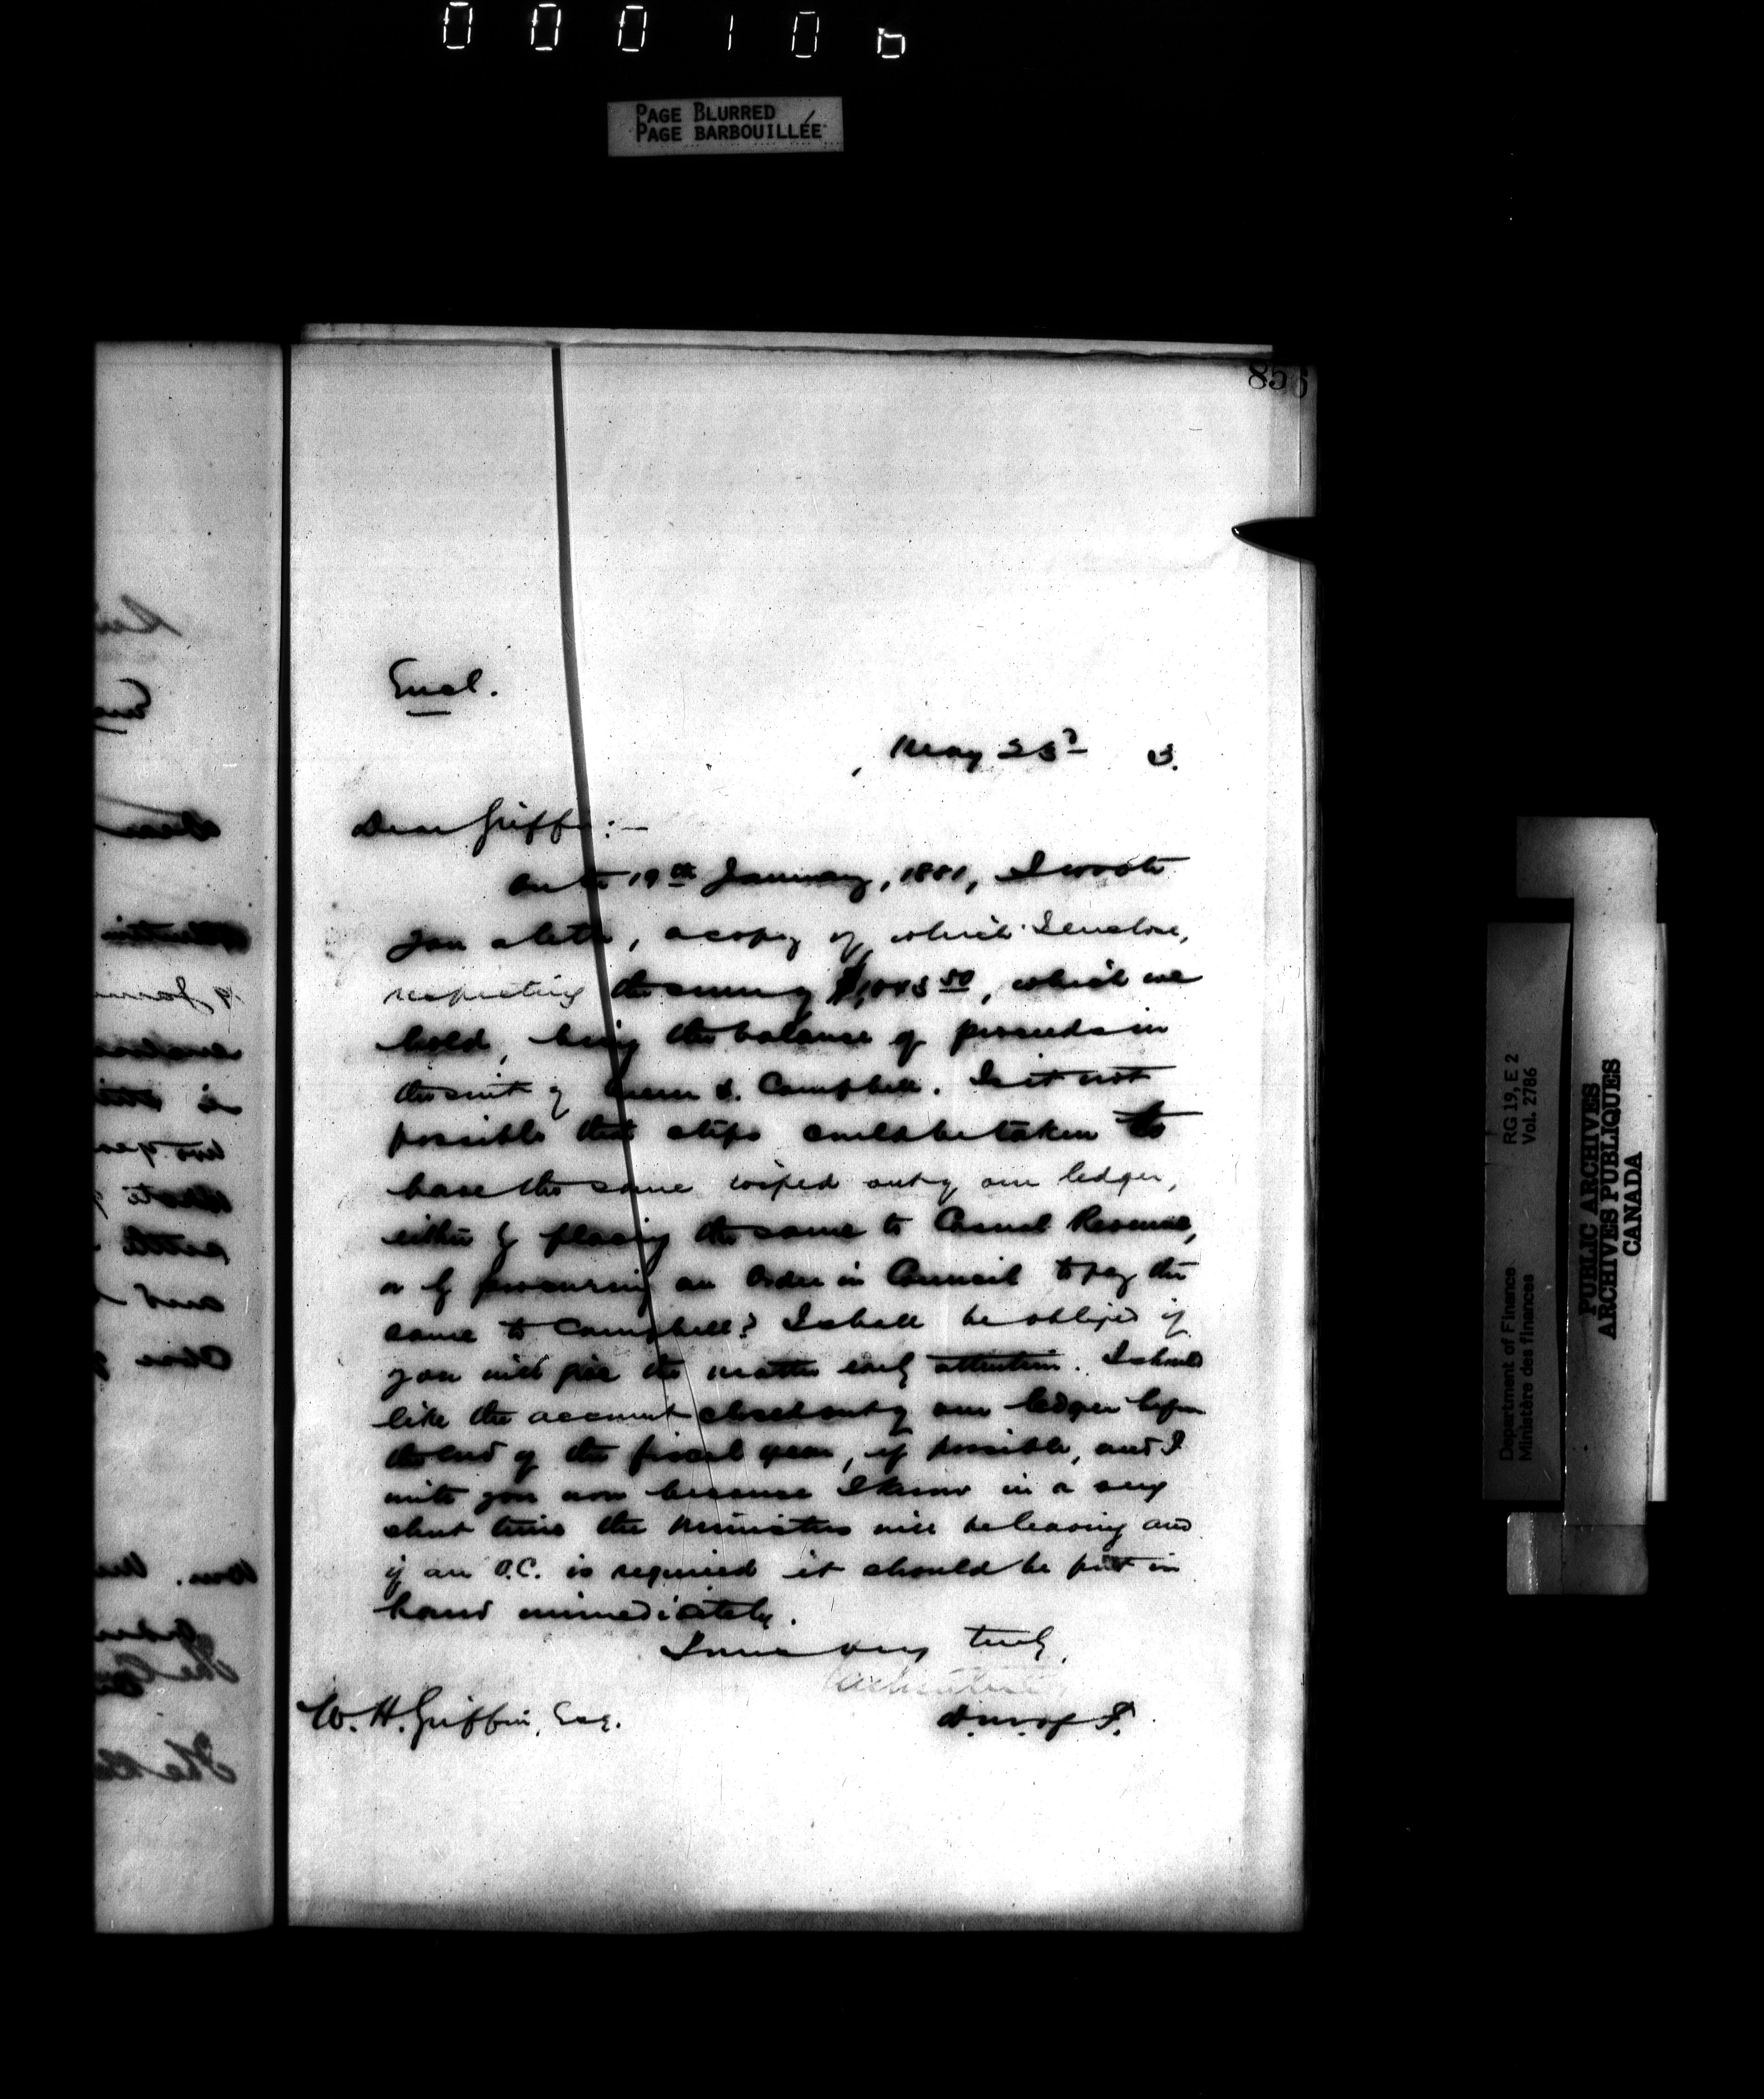 00010b
PAGE BLURRED
PAGE BARBOUILLÉE
856
Encl.
May 23d 3.
Dear Griffin:—
On the 19th January, 1881, I wrote
you a letter, a copy of which I enclose,
respecting the sum of which we
hold, being the balance of proceeds in
the suit of Queen v. Campbell. Is it not
possible that steps could be taken to
have the same wiped out of our ledger,
either by placing the same to Casual Revenue,
or by procuring an Order in Council to pay the
same to Campbell? I shall be obliged if
you will give the matter early attention. I should
like the account closed out of our ledger before
the end of the fiscal year, if possible, and I
write you now because I know in a very
short time the Ministers will be leaving and
if an O.C. is required it should be put in
hand immediately.
Yours very truly,
D.M. of F.
W. H. Griffin, Esq.
Department of Finance RG 19, E 2
Ministère des finances Vol. 2786
PUBLIC ARCHIVES
ARCHIVES PUBLIQUES
CANADA